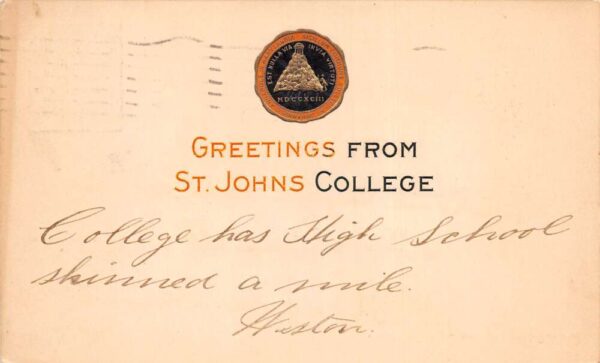 EST NULLA VIA INVIA VIRTUTI
MDCCXCIII
GREETINGS FROM
ST. JOHNS COLLEGE
College has High School
skinned a mile.
Weston.